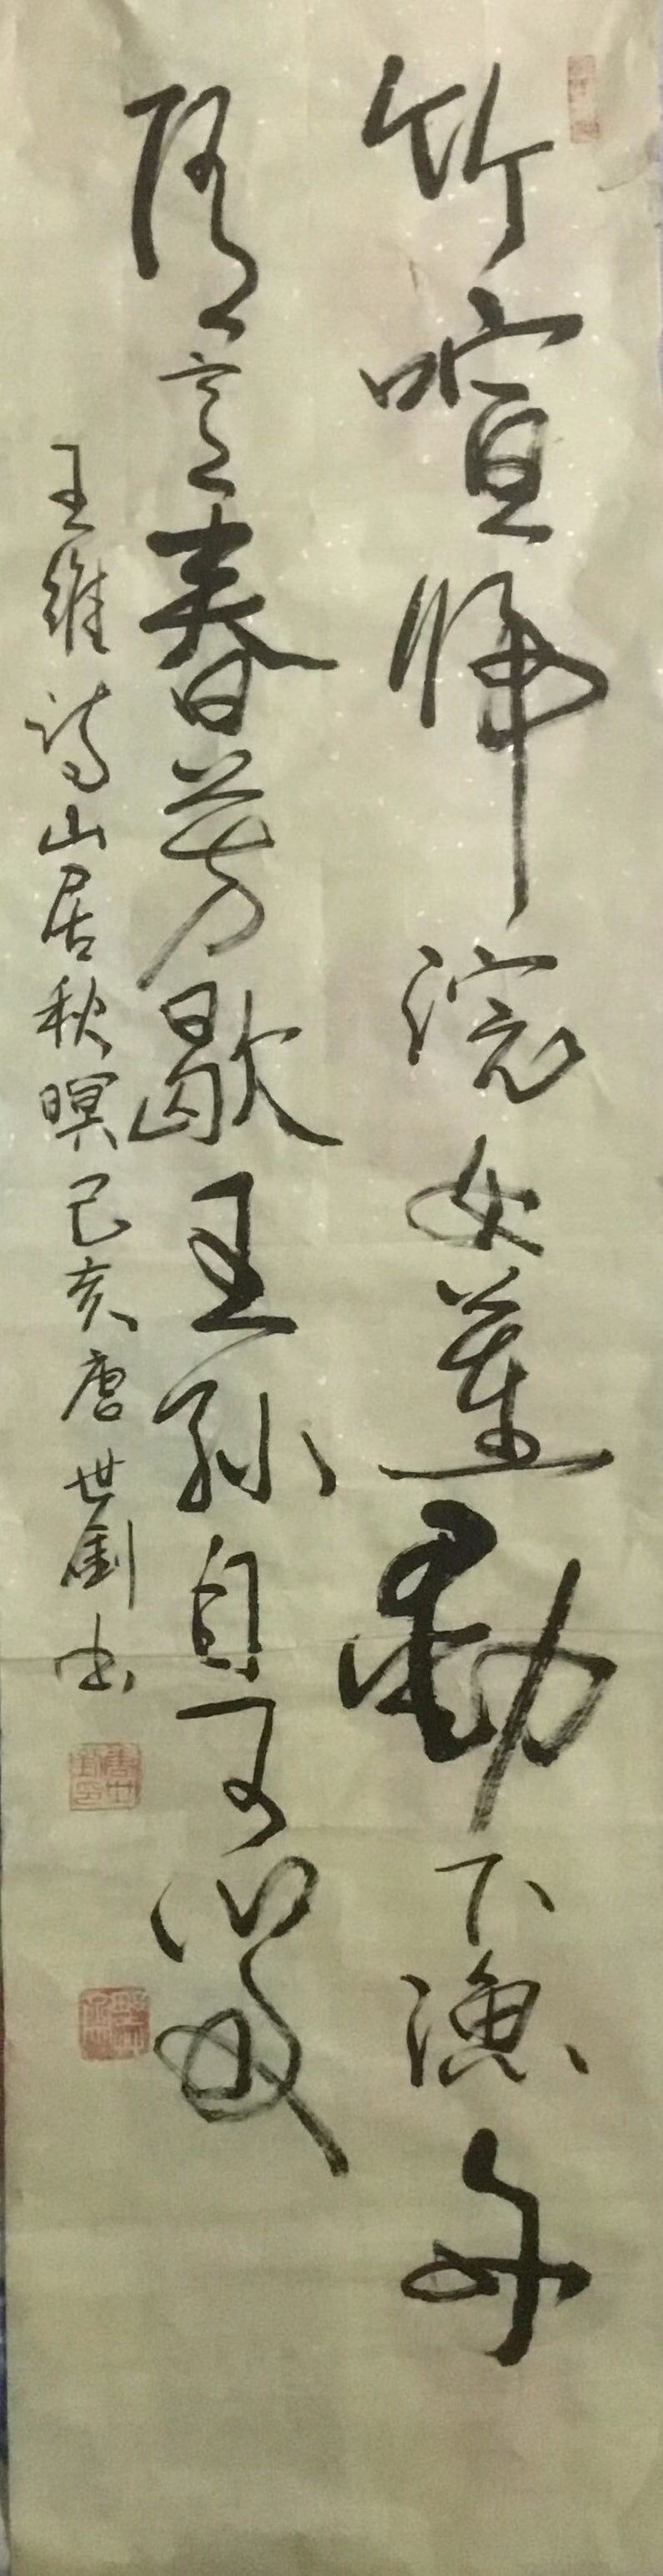 竹喧归浣女莲动下渔舟
随意春芳歇王孙自可留
王维诗山居秋暝己亥唐世剑书